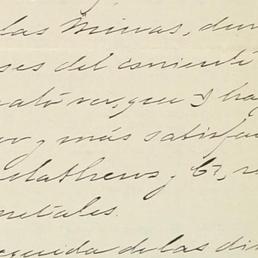 las Minas, du
ses del corriente
ver, que
y más satisfa
Mathews y Cª,
metales.
eguida de las di